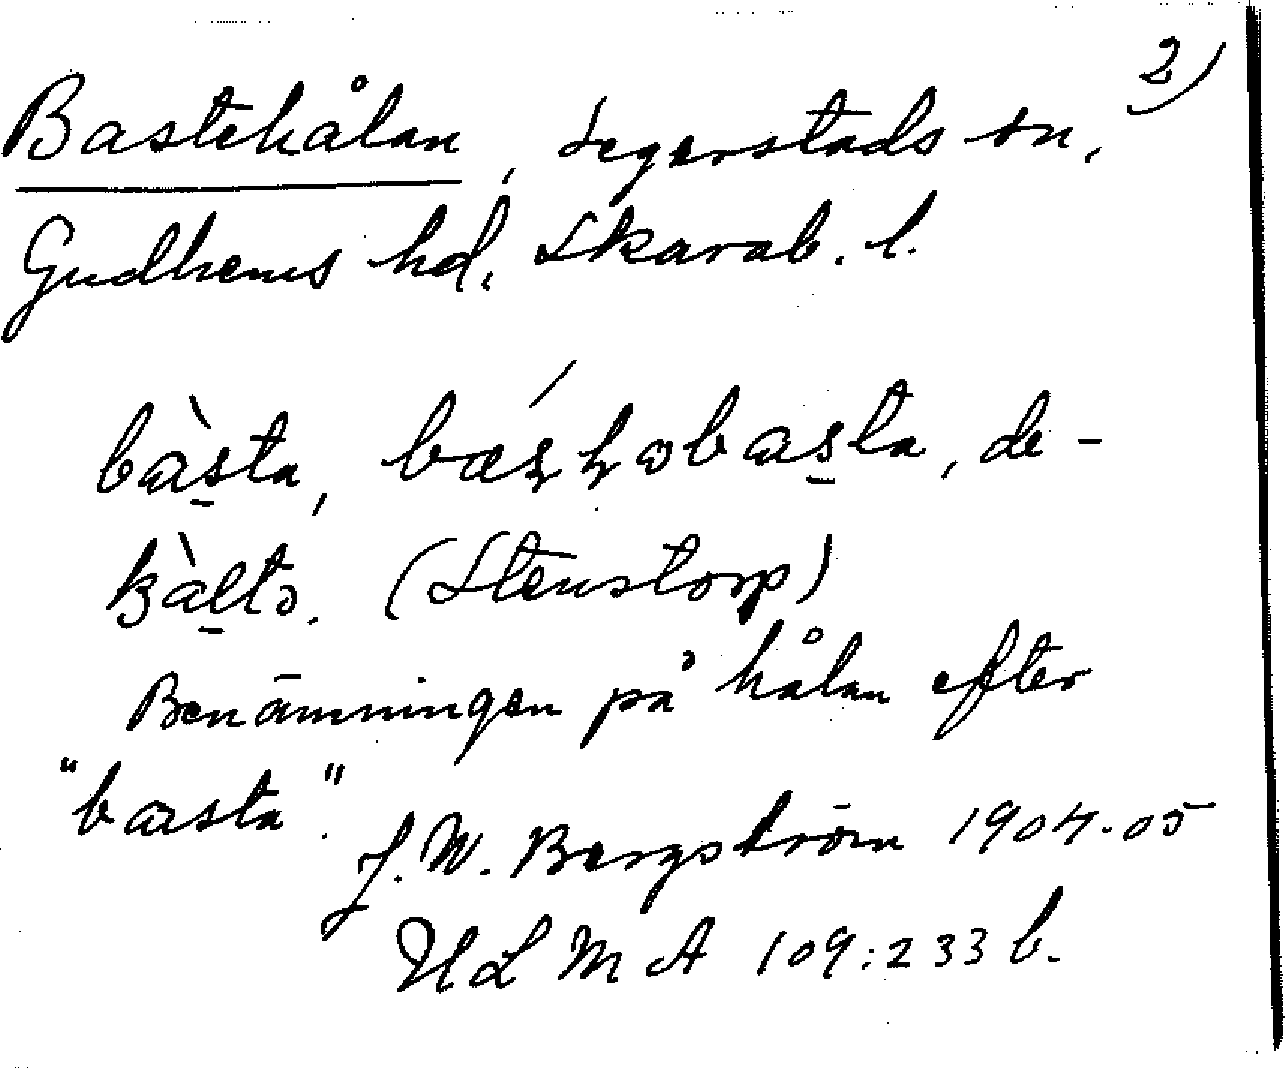 2)
Bastehålan, Segerstads sn,
Gudhems hd, Skarab. l.
bàsta, de-
(Stenstorp)
Benämningen på hålan efter
"basta".
J. W. Bergström 1904-05
ULMA 109:233 b.